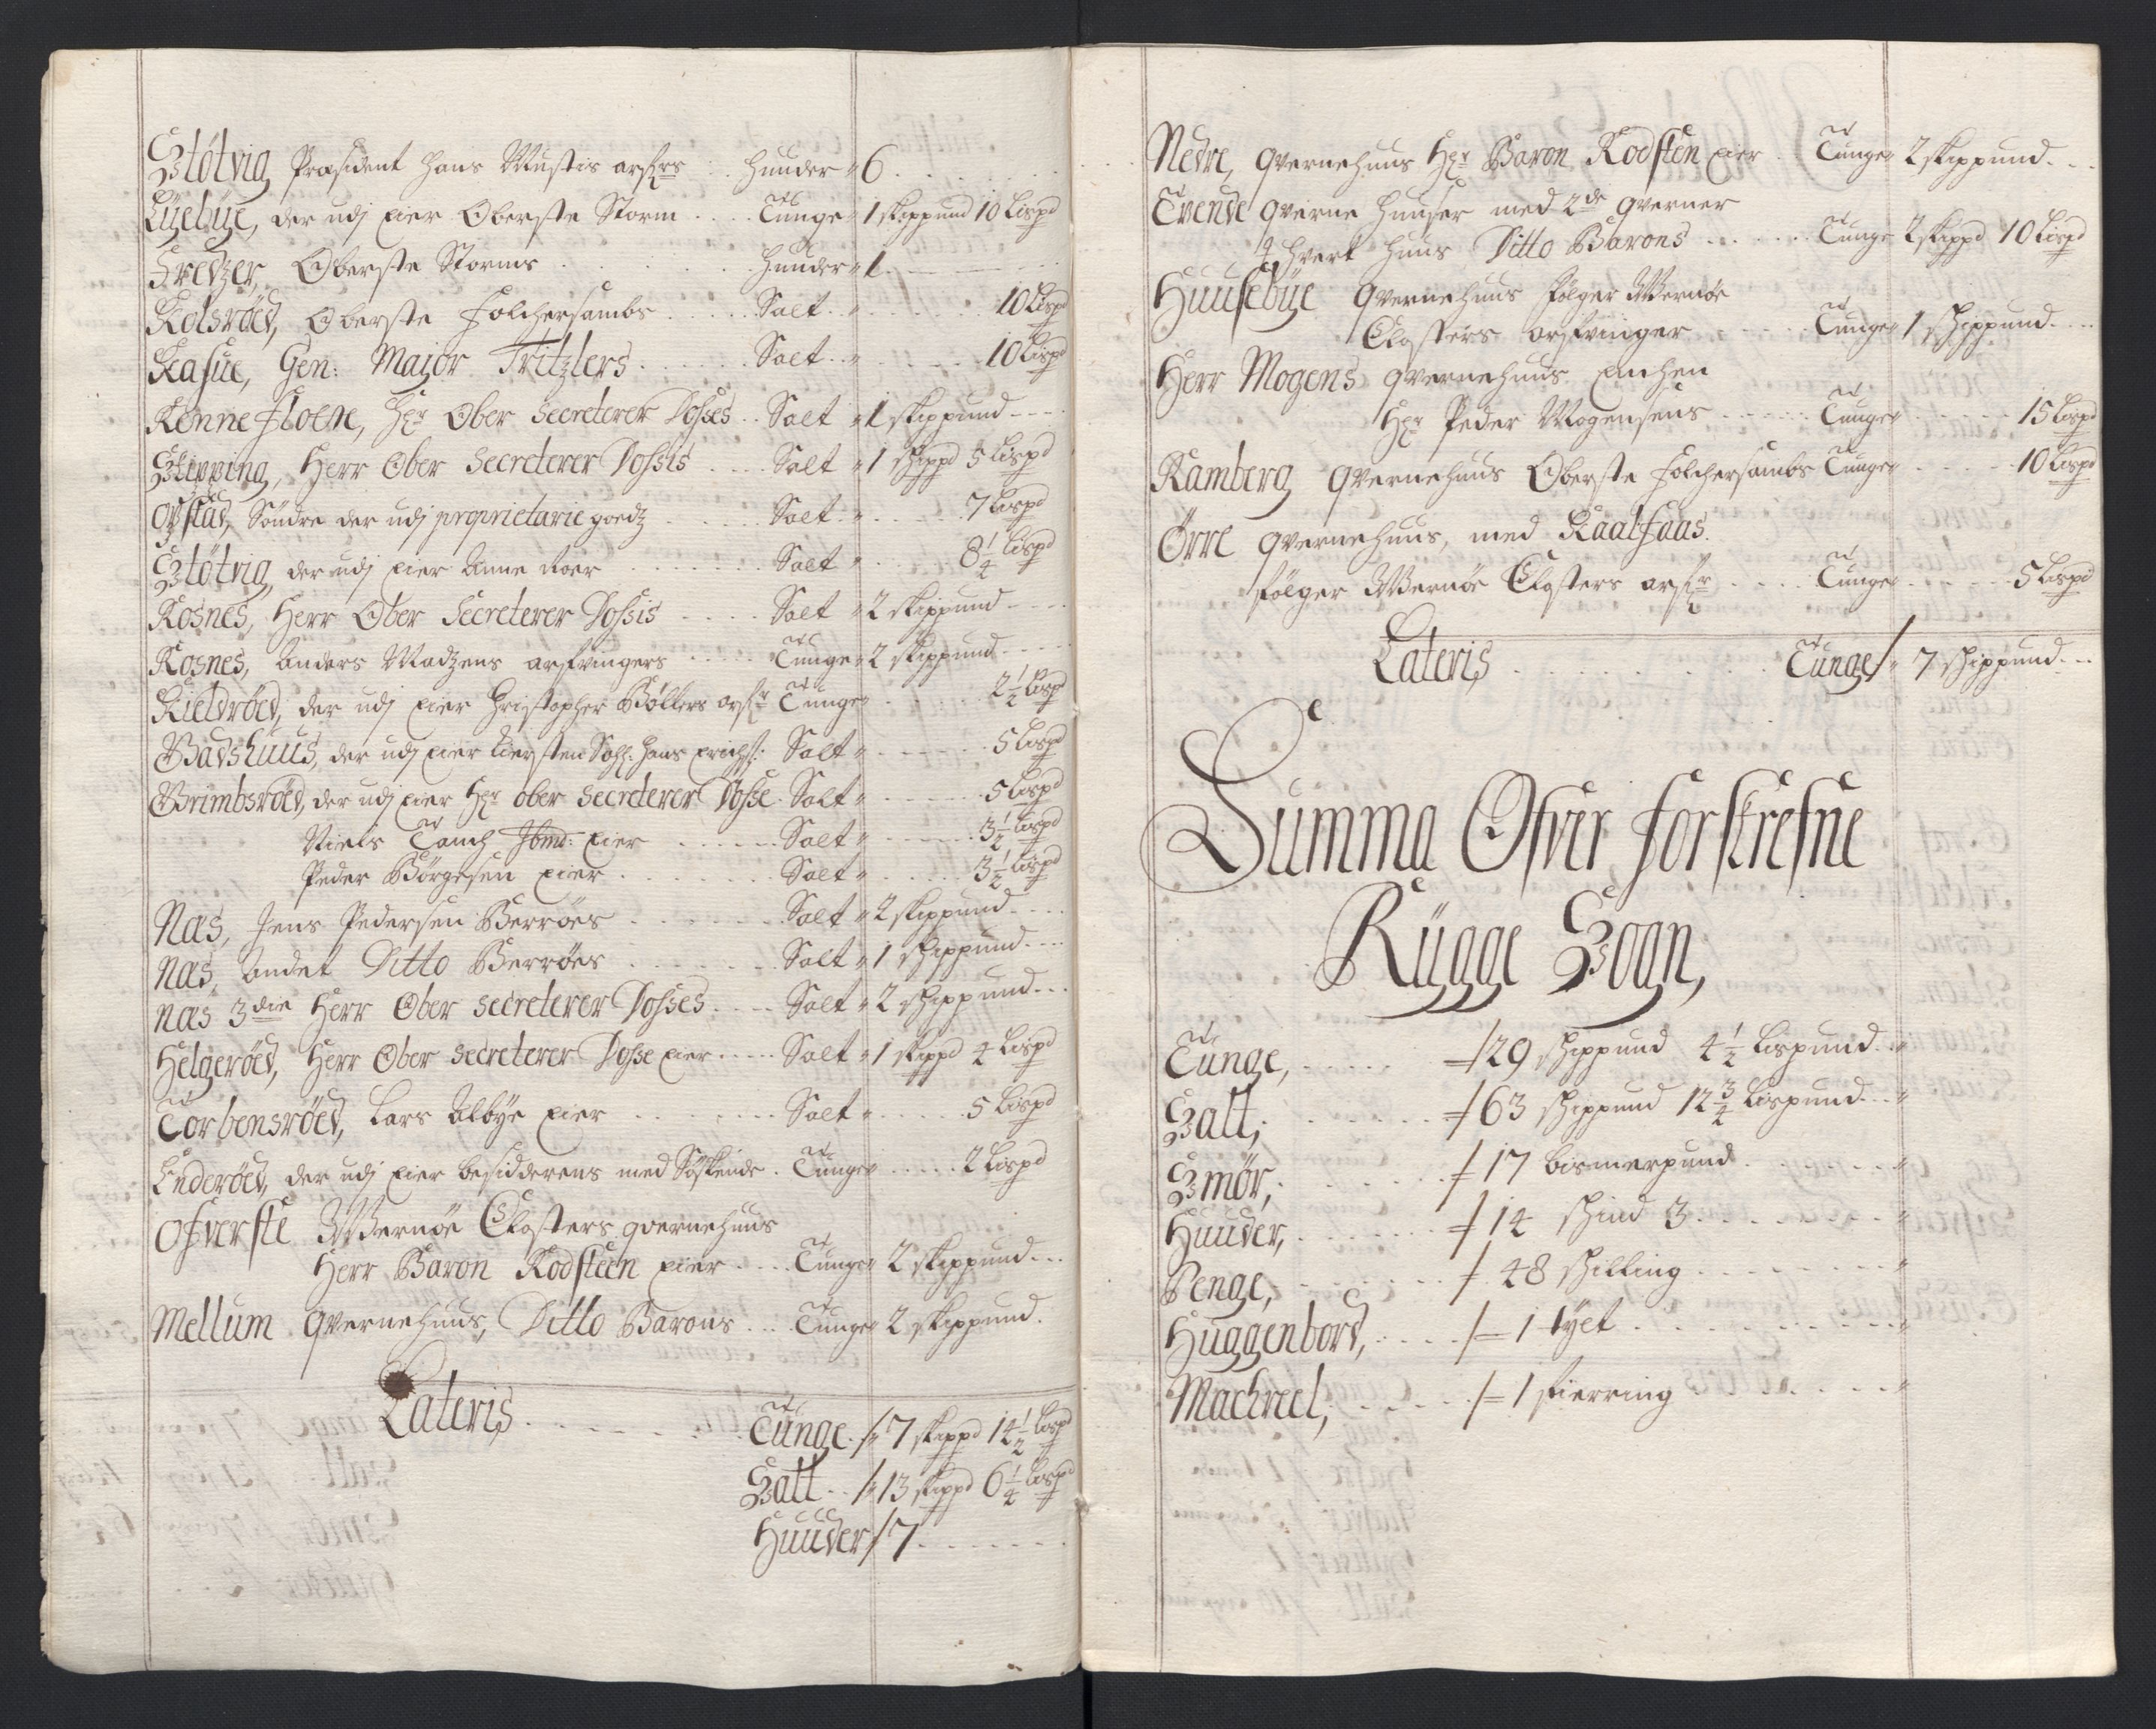 Støtvig, Præsident Hans Mustis arfrs .. huuder " 6
Lÿebÿe, der udj eier Oberste Storm .... Tunge " 1 skippund 10 Lispd
Fredzer, Oberste Storms ..... huuder " 1
Kolsrøed, Oberste Folchersambs ..... Salt .. " ..... 10 Lispd
Kasüe, Gen: Major Tritzlers ...... Salt .. " ..... 10 Lispd
Renne Floene, Hr Ober Secreterer Dosses .. Salt " 1 skippund
Skipping, Herr Ober Secreterer Dossis .... Salt " 1 skippd 5 Lispd
Ofstad, Söndre der udj proprietarie goedz ..... Salt .. " ..... 7 Lispd
Støtvig, der udj eier Anne Roer ...... Salt " ..... 8 1/4 Lispd
Rosnes, Herr Ober Secreterer Dossis ..... Salt " 2 skippund
Rosnes, Anders Madzens arfvingers ..... Tunge " 2 skippund
Kieldrøed, der udj eier Christopher Bøllers arfr Tunge " ..... 2 1/2 Lispd
Badshuus, der udj eier Kiersten Sahl: Hans Erichs: Salt " ..... 5 Lispd
Brimbsrøed, der udj eier Hr Ober Secreterer Dosse . Salt " ..... 5 Lispd
Niels Tanch Ibm: eier ...... Salt " ..... 3 1/2 Lispd
Peder Børgesen eier ...... Salt " ..... 3 1/2 Lispd
Næs, Jens Pedersen Berrøes ...... Salt " 2 skippund
Næs, Andet Ditto Berrøes ...... Salt " 1 skippund
Næs 3die Herr Ober Secreterer Dosses .... Salt " 2 skippund
Helgerøed, Herr Ober Secreterer Dosse eier ..... Salt " 1 skippd 4 Lispd
Torbensrøed, Lars Albye eier ...... Salt " ..... 5 Lispd
Enderøed, der udj eier besidderens med Søskende . Tunge " ..... 2 Lispd
Ofverste Wernöe Closters qvernehuus
Herr Baron Rodsteen eier .... Tunge " 2 skippund
Mellum Qvernehuus, Ditto Barons ... Tunge " 2 skippund.
Lateris ...... Tunge / " 7 skippd 14 1/2 Lispd
Salt .. / " 13 skippd 6 1/4 Lispd
Huuder / 7
Nedre, qvernehuus Hr Baron Rodsten eier . Tunge " 2 skippund
Tvende qverne huuser med 2de qverner
i hvert huus Ditto Barons ..... Tunge 2 skippd 10 Lispd
Huusebÿe Qvernehuus følger Wernöe
Closters arfvinger ..... Tunge " 1 skippund
Herr Mogens qvernehuus Enchen
Hr Peder Mogensens ..... Tunge " ..... 15 Lispd
Kamberg Qvernehuus Oberste Folchersambs Tunge " ..... 10 Lispd
Ørre qvernehuus, med Kaalfaas.
følger Wernöe Closters arfr .... Tunge " ..... 5 Lispd
Lateris ....... Tunge / " 7 skippund
Summa Ofver forskrefne
Rÿgge Sogn,
Tunge, ..... 29 skippund 4 1/2 Lispund
Salt, ..... 63 skippund 12 3/4 Lispund
Smør, ..... 17 bismerpund
Huuder, ..... 14 skind 3
Penge, ..... 48 skilling
Huggenbord, .... 1 tÿet
Machreel, .... 1 fierring